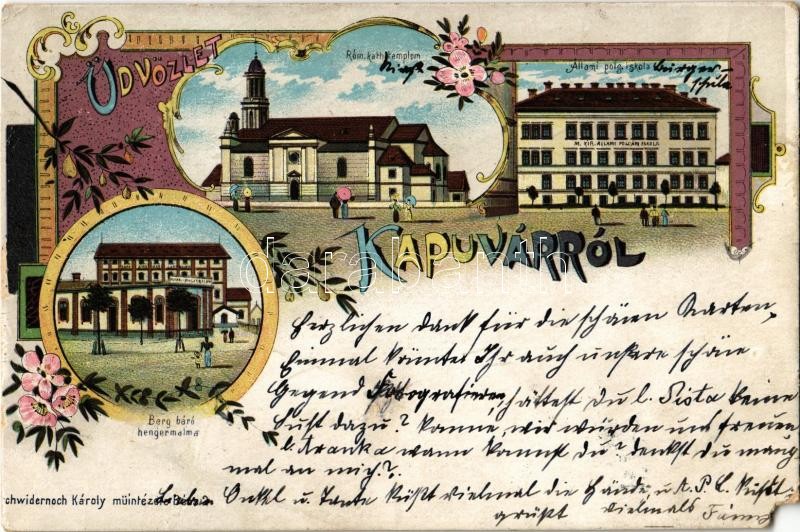 ÜDVÖZLET
Róm. kath. templom
Kirche
Állami polg. iskola Bürger
schule
M. KIR. ÁLLAMI POLGÁRI ISKOLA
KAPUVÁRRÓL
Berg báró
hengermalma
Herzlichen dank für die schönen Karten,
Einmal könntet Ihr auch unsere schöne
Gegend Fotografieren, hättest du l. Pista keine
Lust dazu? komme, wir würden uns freuen
l. Aranka wann kommst du? denkst du manch
mal an mich?
chwidernoch Károly müintézete Bécs 2.
Onkel u. Tante küßt vielmal die Hände, u. A. P. L. küßt
grüßt vielmals